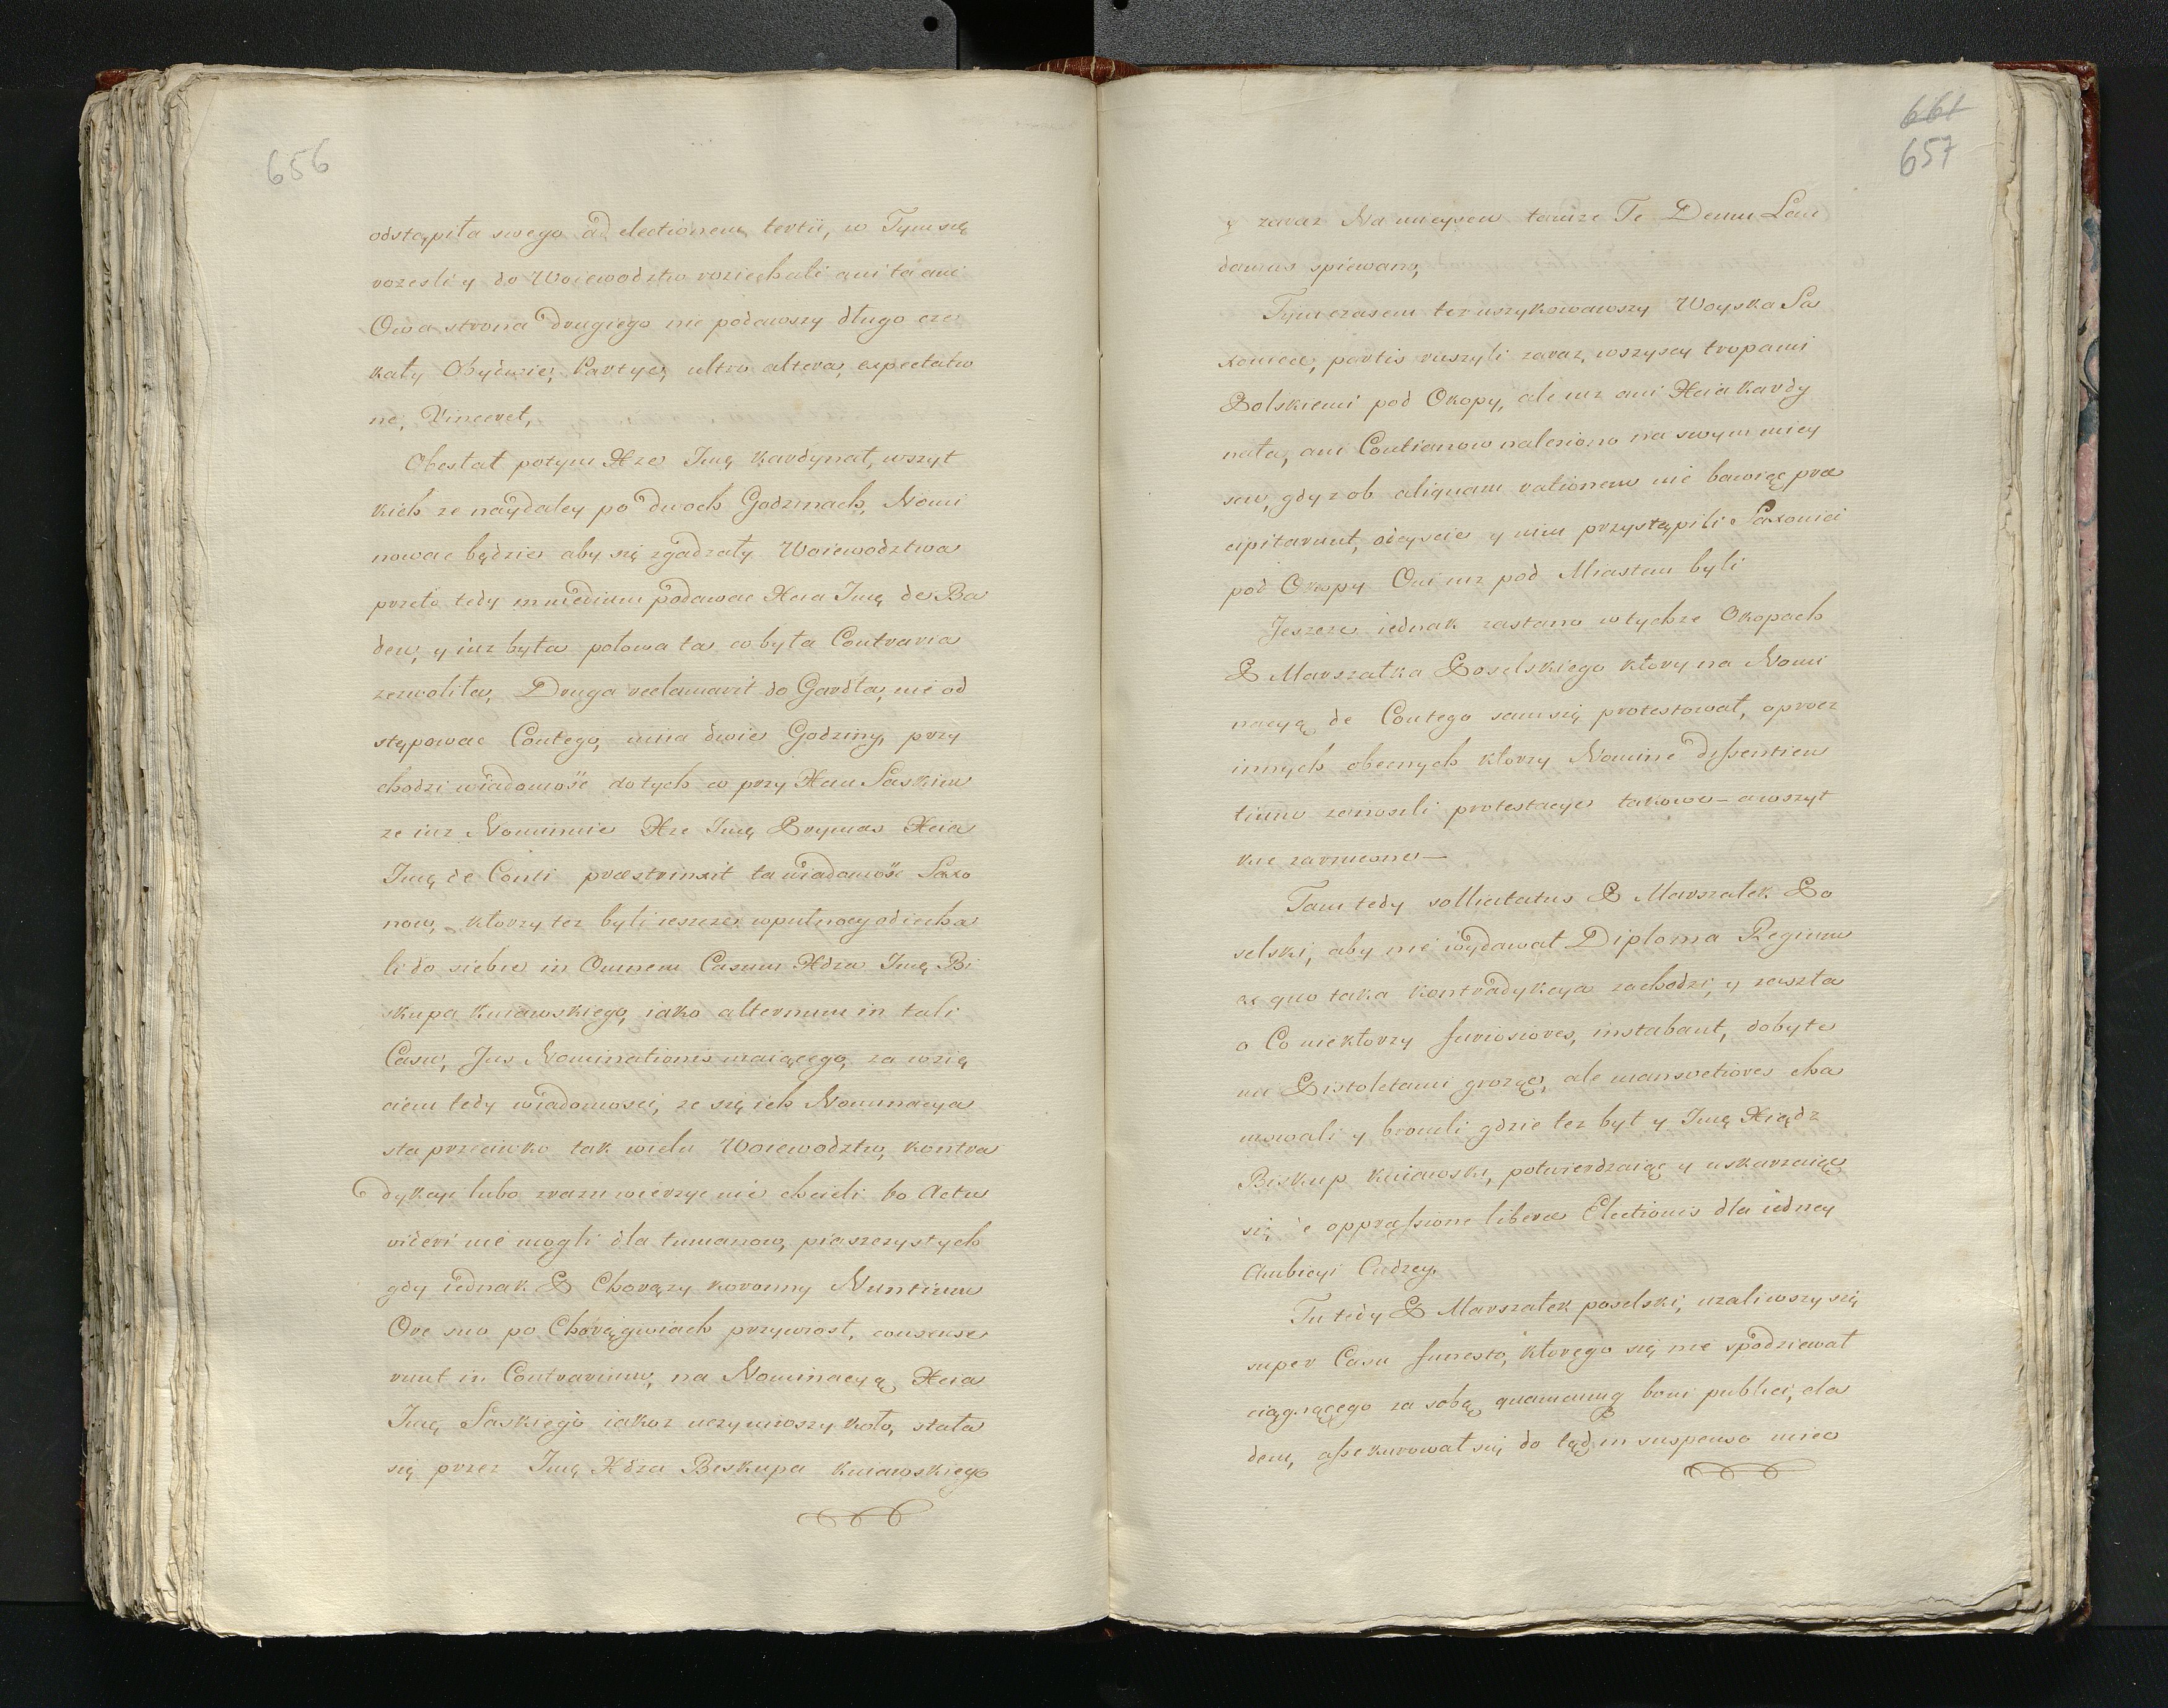 656
odstąpiła swego ad electionem tertii, w Tym się
rozesli y do Woiewodztw roziechali ani ta ani
Owa strona drugiego nie podawszy długo cze
kały Obydwie, Partye, ultro altera, expectatio
ne, Vinceret,
Obesłał potym Xże Jmę Kardynał, wszyt
kich ze naydaley po dwoch Godzinach, Nomi
nowac będzie aby się zgadzały Woiewodztwa
przeto tedy in medium podawac Xcia Jmę de Ba
den, y iuz była połowa ta co była Contraria
zezwoliła, Druga reclamavit do Gardła, nie od
stępowac Contego, mija dwie Godziny, przy
chodzi wiadomość do tych co przy Xciu Saskim
ze iuz Nominuie Xże Jmę Prymas Xcia
Jmę de Conti praestrinxit ta wiadomość Saxo
now, ktorzy tez byli ieszcze w pułnocy odiecha
li do siebie in Omnem Casum Xdza Jmę Bi
skupa Kuiawskiego, iako alternum in tali
Casu, Jus Nominationis maiącego, za wzię
ciem tedy wiadomosci, ze się ich Nominacya
sta przeciwko tak wielu Woiewodztw, kontra
dykcyi lubo zrazu wierzyc nie chcieli bo Actu
videri nie mogli dla tumanow, piaszczystych
gdy iednak P Chorązy koronny Nuntium
Ore suo po Chorągwiach przywiosł, consense
runt in Contrarium, na Nominacyą Xcia
Jmę Saskiego iakoz uczyniwszy koło, stała
się przez Jmę Xdza Biskupa Kuiawskiego
661
657
y zaraz Na mieyscu tamze Te Deum Lau
damus spiewano,
Tym czasem tez uszykowawszy Woyska Sa
xonicae, partis ruszyli zaraz, wszyscy tropami
Polskiemi pod Okopy, ale iuz ani Xcia Kardy
nała, ani Contianow naleziono na swym miey
scu, gdyz ob aliquam rationem nie bawiąc prae
cipitarunt, odeyscie y nim przystąpili Saxonici
pod Okopy Oni iuz pod Miastem byli
Jeszcze iednak zastano w tychze Okopach
P Marszałka Poselskiego ktory na Nomi
nacyą de Contego sam się protestował, oprocz
innych obecnych ktorzy Nomine dissentien
tium zanosili protestacye takowe – a wszyt
kie zarniesne –
Tam tedy sollicitatus P Marszałek Po
selski, aby nie wydawał Diploma Regium
ex quo taka kontradykcya zachodzi, y zaszła
o Co niektorzy furiosiores, instabant, dobyte
mi Pistoletami grożąc, ale mansvetiores cha
mowali y bronili gdzie tez był y Jmę Xiądz
Biskup Kuiawski, potwierdzaiąc y uskarzaiąc
się e oppressione libera Electionis dla iedney
Ambicyi Cudzey.
Tu tedy P Marszałek poselski, uzaliwszy się
super Casu funesto, ktorego się nie spodziewał
ciągnącego za sobą quamcunq boni publici, cla
dem, assekurował się do tąd in suspenso miec